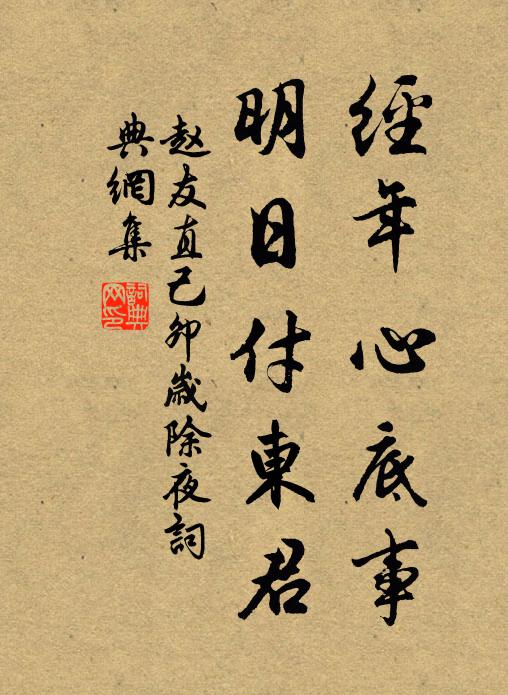 經年心底事
明日付東君
赵友直己卯歲除夜詞
典網集
詞典网印